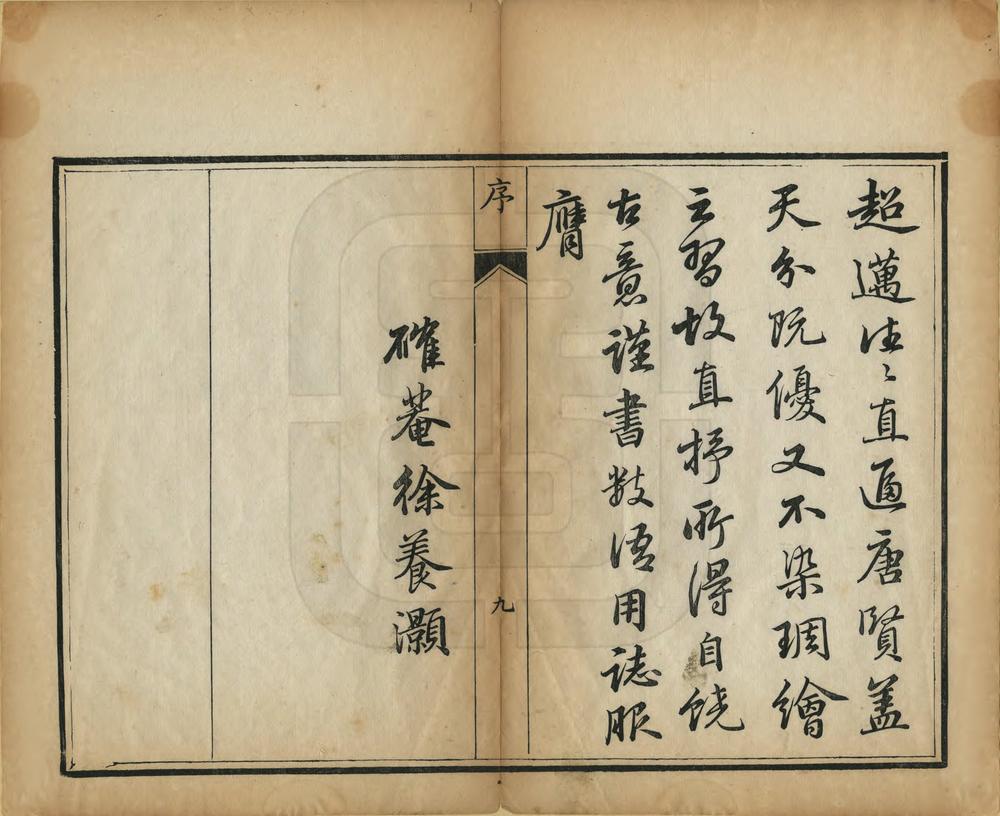 超邁往〻直逼唐賢蓋
天分既優又不染琱繪
之習故直抒所得自饒
古意謹書數語用誌服
膺
序
九
確菴徐養灝